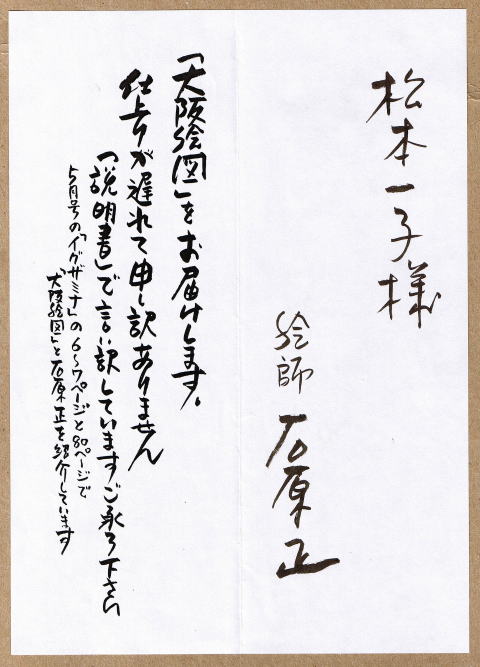 松本一子様
絵師 石原正
「大阪絵図」をお届けします。
仕上りが遅れて申し訳ありません
「説明書」で言い訳していますご承了下さい
5月号の「イグザミナ」の6〜7ページと80ページで
「大阪絵図」と石原正を紹介しています